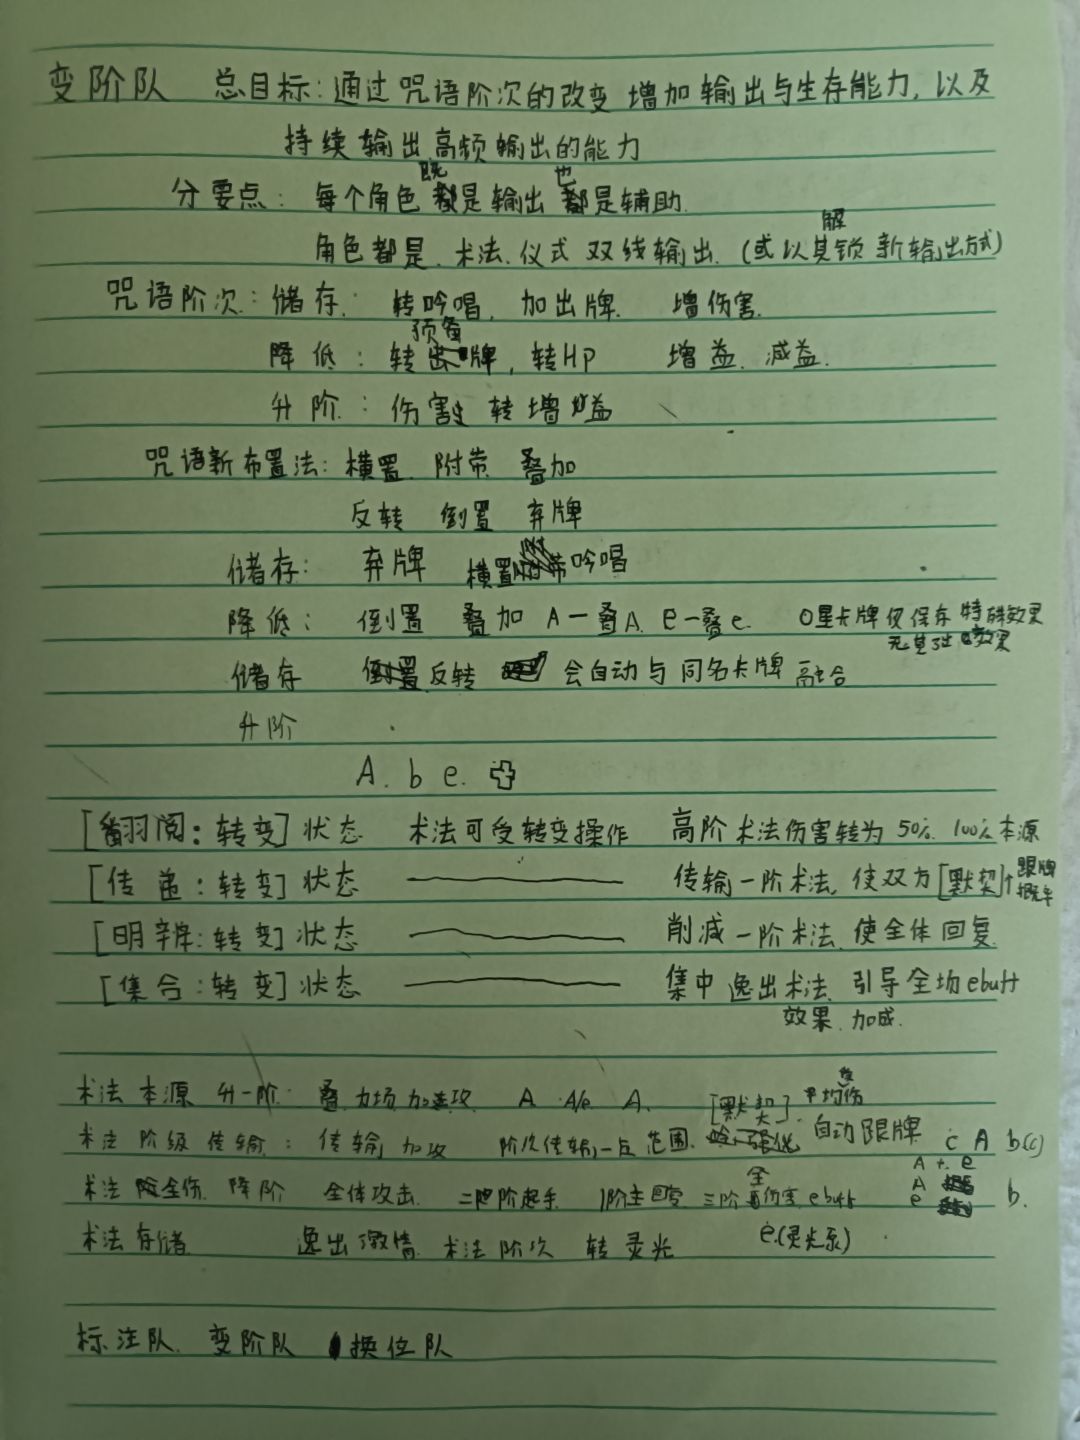 变阶队 总目标:通过咒语阶次的改变 增加输出与生存能力,以及
持续输出高频输出的能力
分要点: 每个角色既是输出也都是辅助.
角色都是.术法、仪式 双线输出.(或以其解锁新输出方式)
咒语阶次:储存: 转吟唱, 加出牌. 增伤害.
降低: 转预备牌, 转HP 增益. 减益.
升阶: 伤害 转增益
咒语新布置法: 横置. 附带. 叠加
反转 倒置 弃牌
储存: 弃牌 横置 吟唱
降低: 倒置 叠加 A一叠A. e一叠e. 0星卡牌仅保存特殊效果
无其它效果
储存 反转 会自动与同名卡牌融合
升阶
A. b e.
[翻阅:转变]状态 术法可受转变操作 高阶术法伤害转为50%. 100%本源
[传递:转变]状态 传输一阶术法, 使双方[默契]↑跟牌概率
[明辨:转变]状态 削减一阶术法、使全体回复.
[集合:转变]状态 集中逸出术法. 引导全场ebuff
效果.加成.
术法本源 升一阶. 叠力场加速攻 A A/e A.
术法阶级传输: 传输加攻 阶次传输 范围. [默契]. 平均伤 自动跟牌 c A b(c)
术法 全伤. 降阶 全体攻击. 二阶起手. 1阶主回复 三阶全伤害. ebuff A + e A e b.
术法存储 逸出激情. 术法阶次 转灵光 e.(灵光系)
标注队. 变阶队 换位队